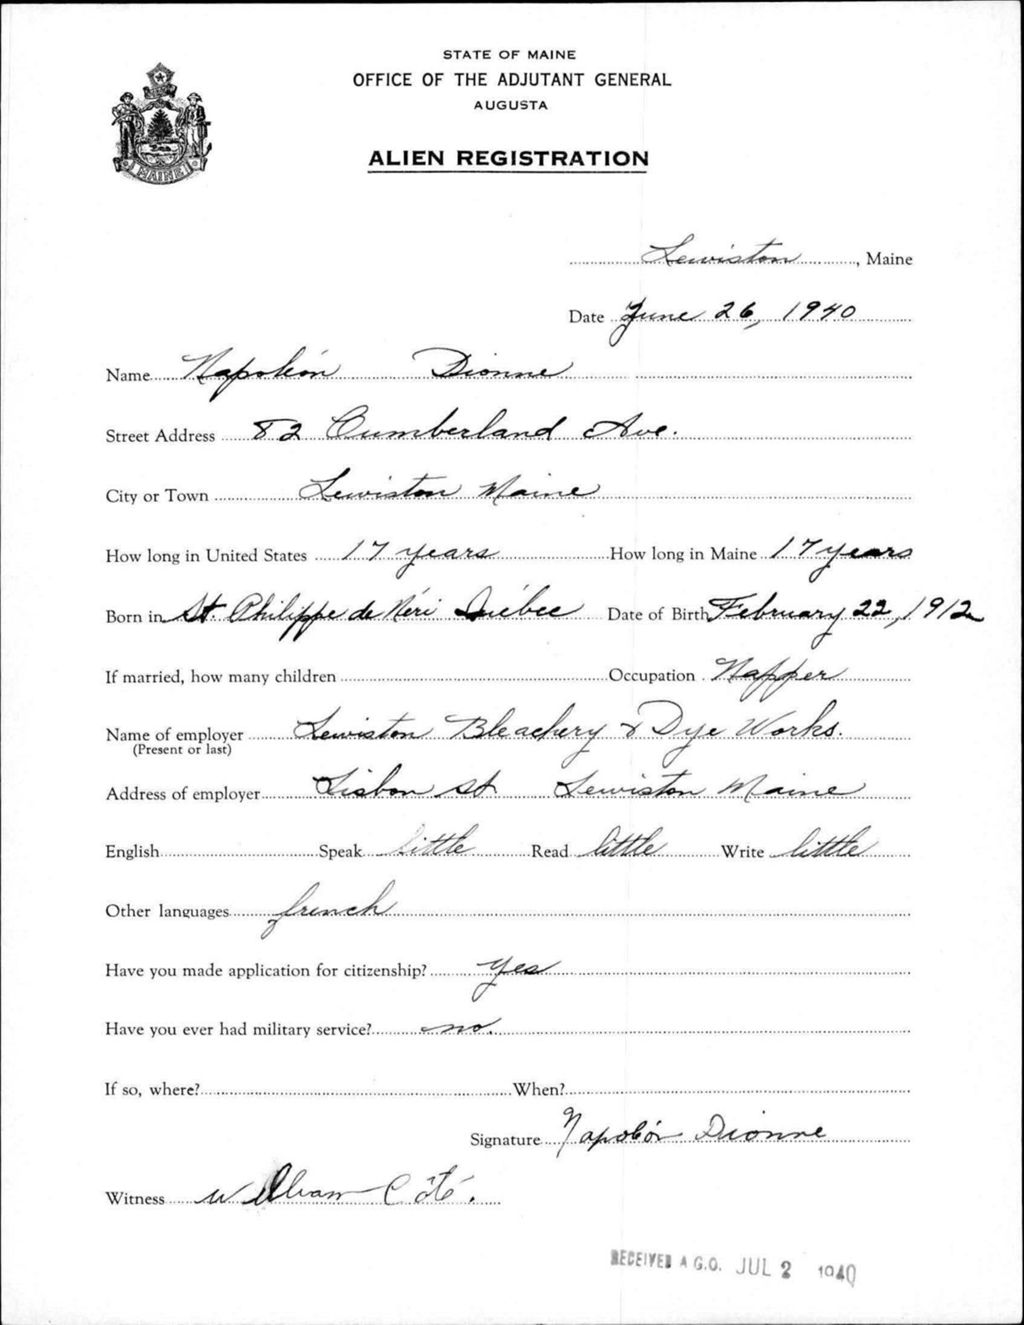 STATE OF MAINE
OFFICE OF THE ADJUTANT GENERAL
AUGUSTA
ALIEN REGISTRATION
MAINE
Lewiston, Maine
Date June 26, 1940
Name Napoléon Dionne
Street Address 82 Cumberland Ave.
City or Town Lewiston Maine
How long in United States 17 years How long in Maine 17 years
Born in St. Philippe de Néri Québec Date of Birth February 22, 1912
If married, how many children Occupation Napper
Name of employer Lewiston Bleachery & Dye Works.
(Present or last)
Address of employer Lisbon St. Lewiston Maine
English Speak little Read little Write little
Other languages french
Have you made application for citizenship? yes
Have you ever had military service? no.
If so, where? When?
Signature Napoléon Dionne
Witness William Côté.
RECEIVED A.G.O. JUL 2 1940